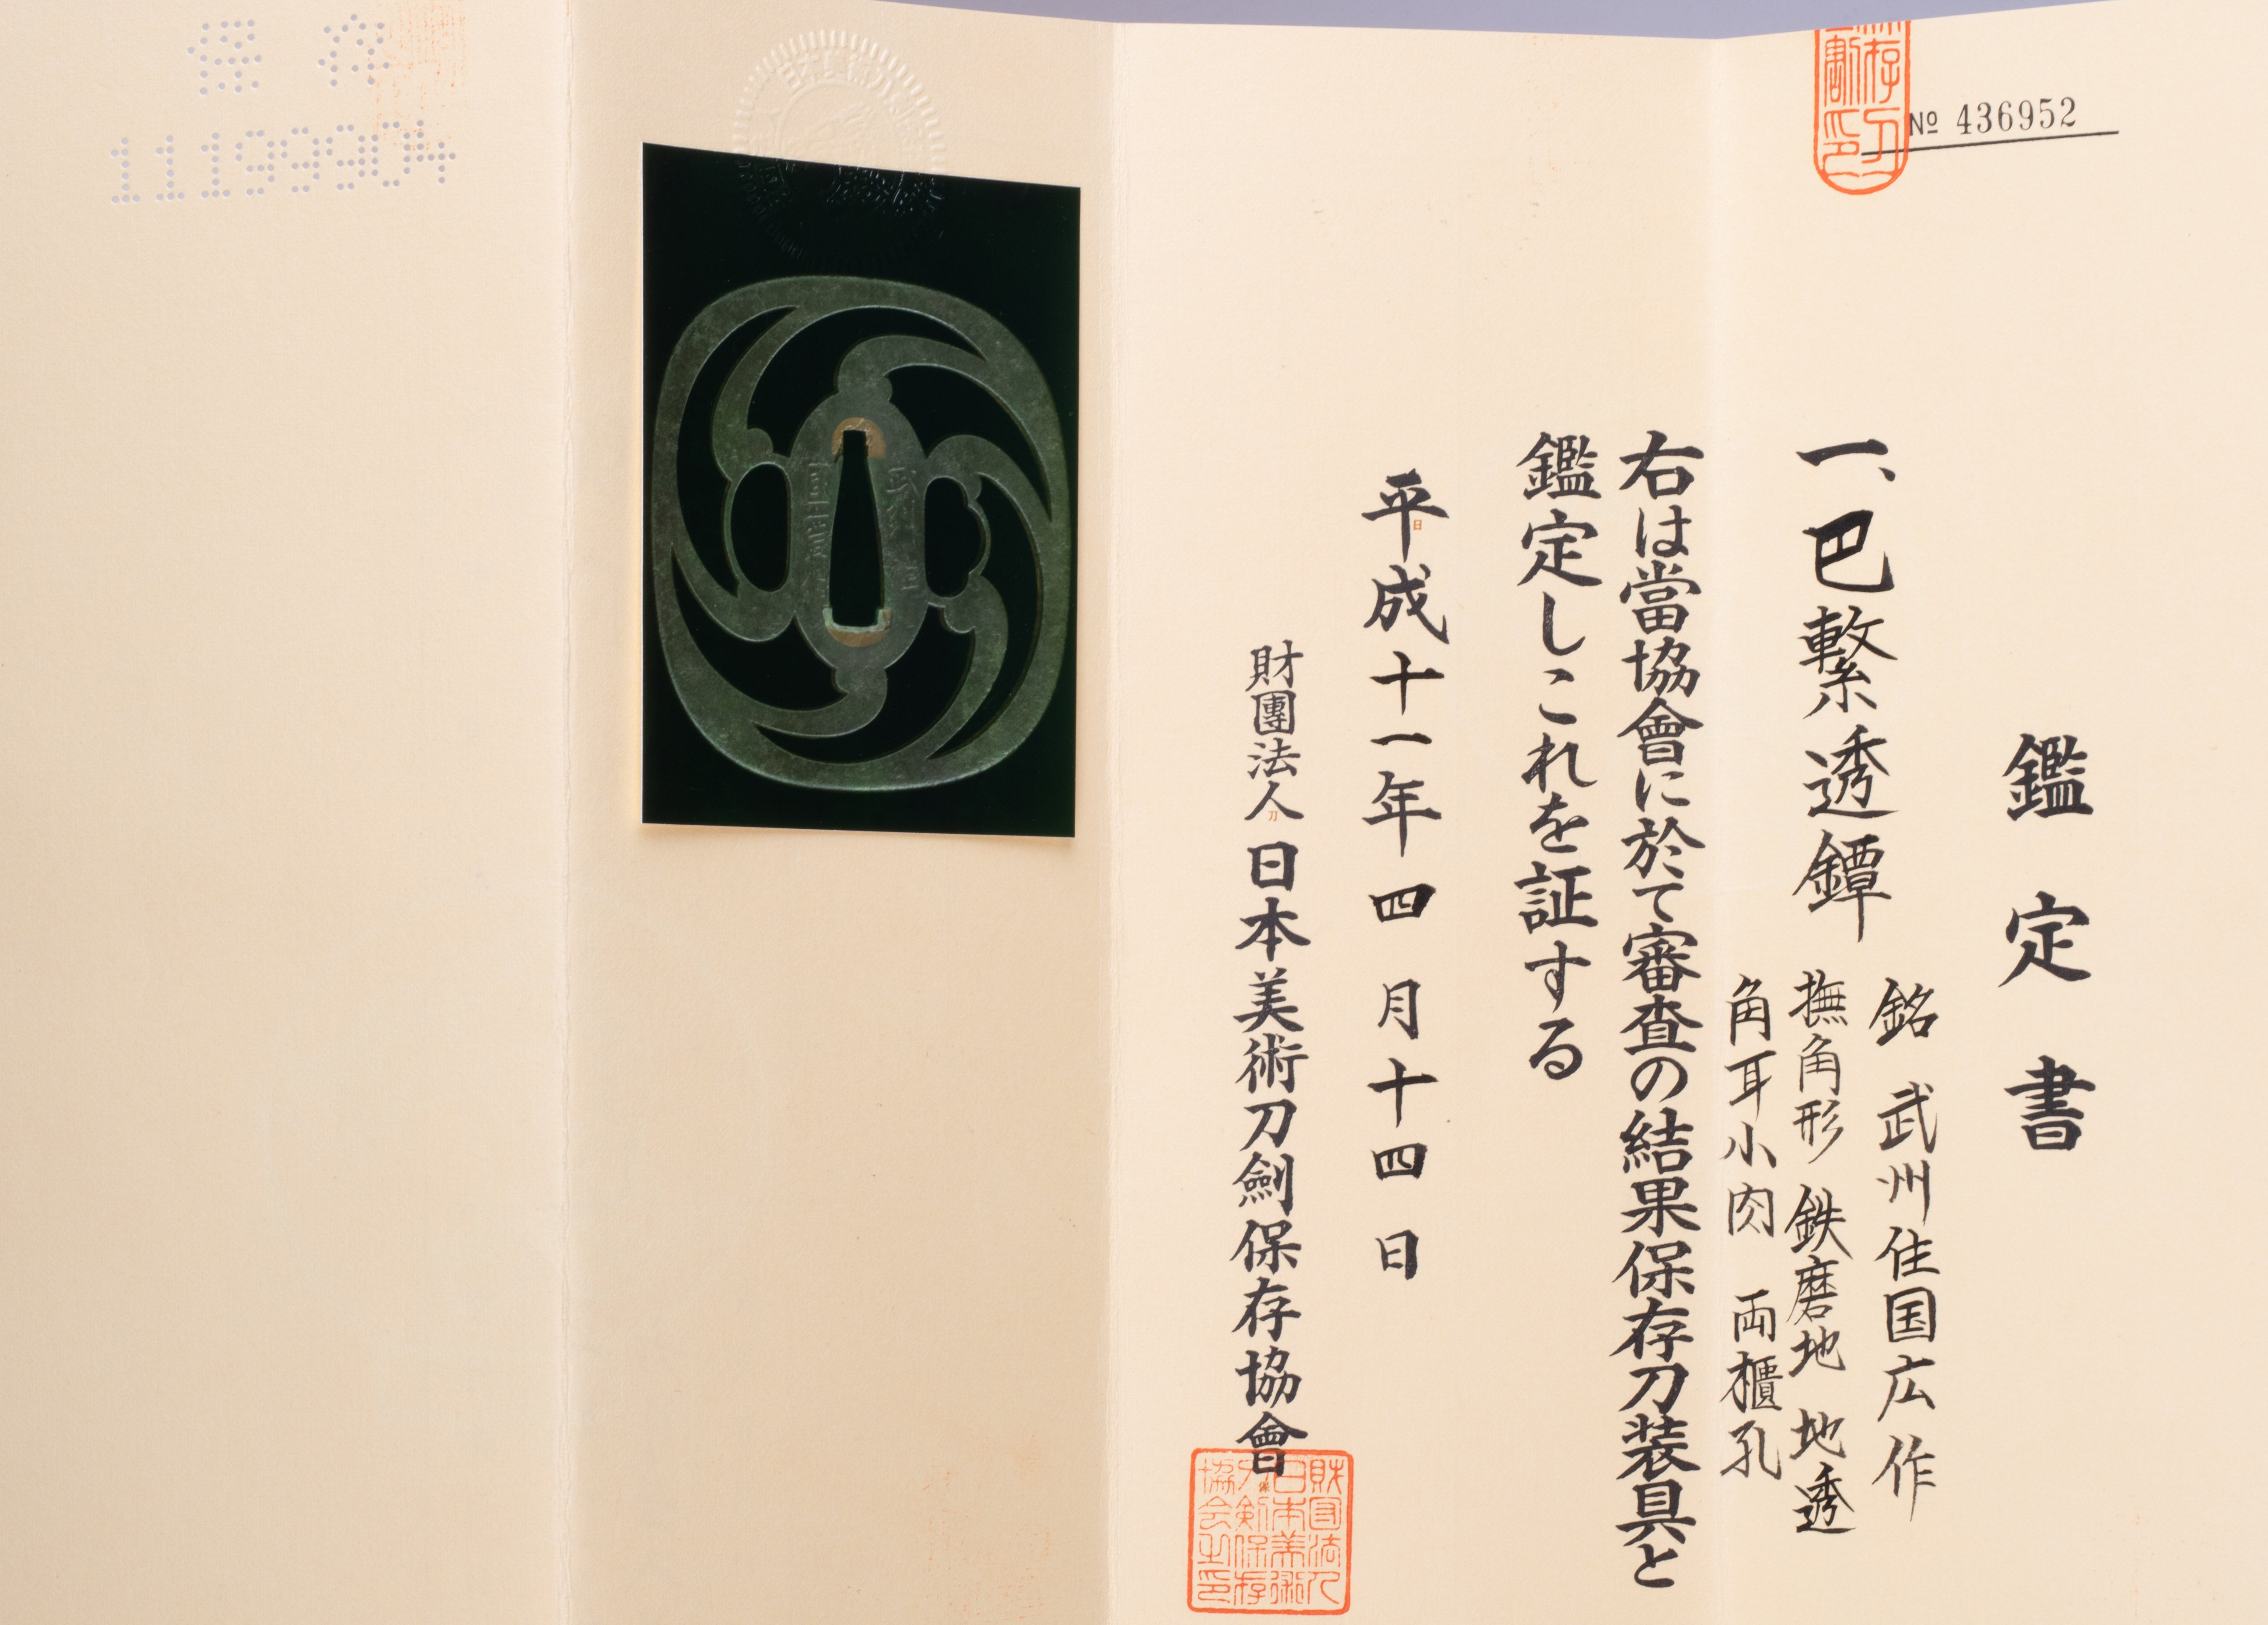 № 436952
鑑定書
一、巴繋透鐔
銘 武州住国広作
撫角形 鉄磨地 地透
角耳小肉 両櫃孔
右は當協會に於て審査の結果保存刀装具と
鑑定しこれを証する
平成十一年四月十四日
財團法人 日本美術刀劍保存協會
財団法人
日本美術
刀剣保存
協会之印
保存
1119904